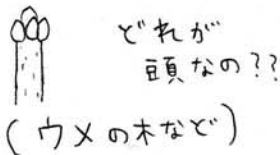 どれが
頭なの??
(ウメの木など)